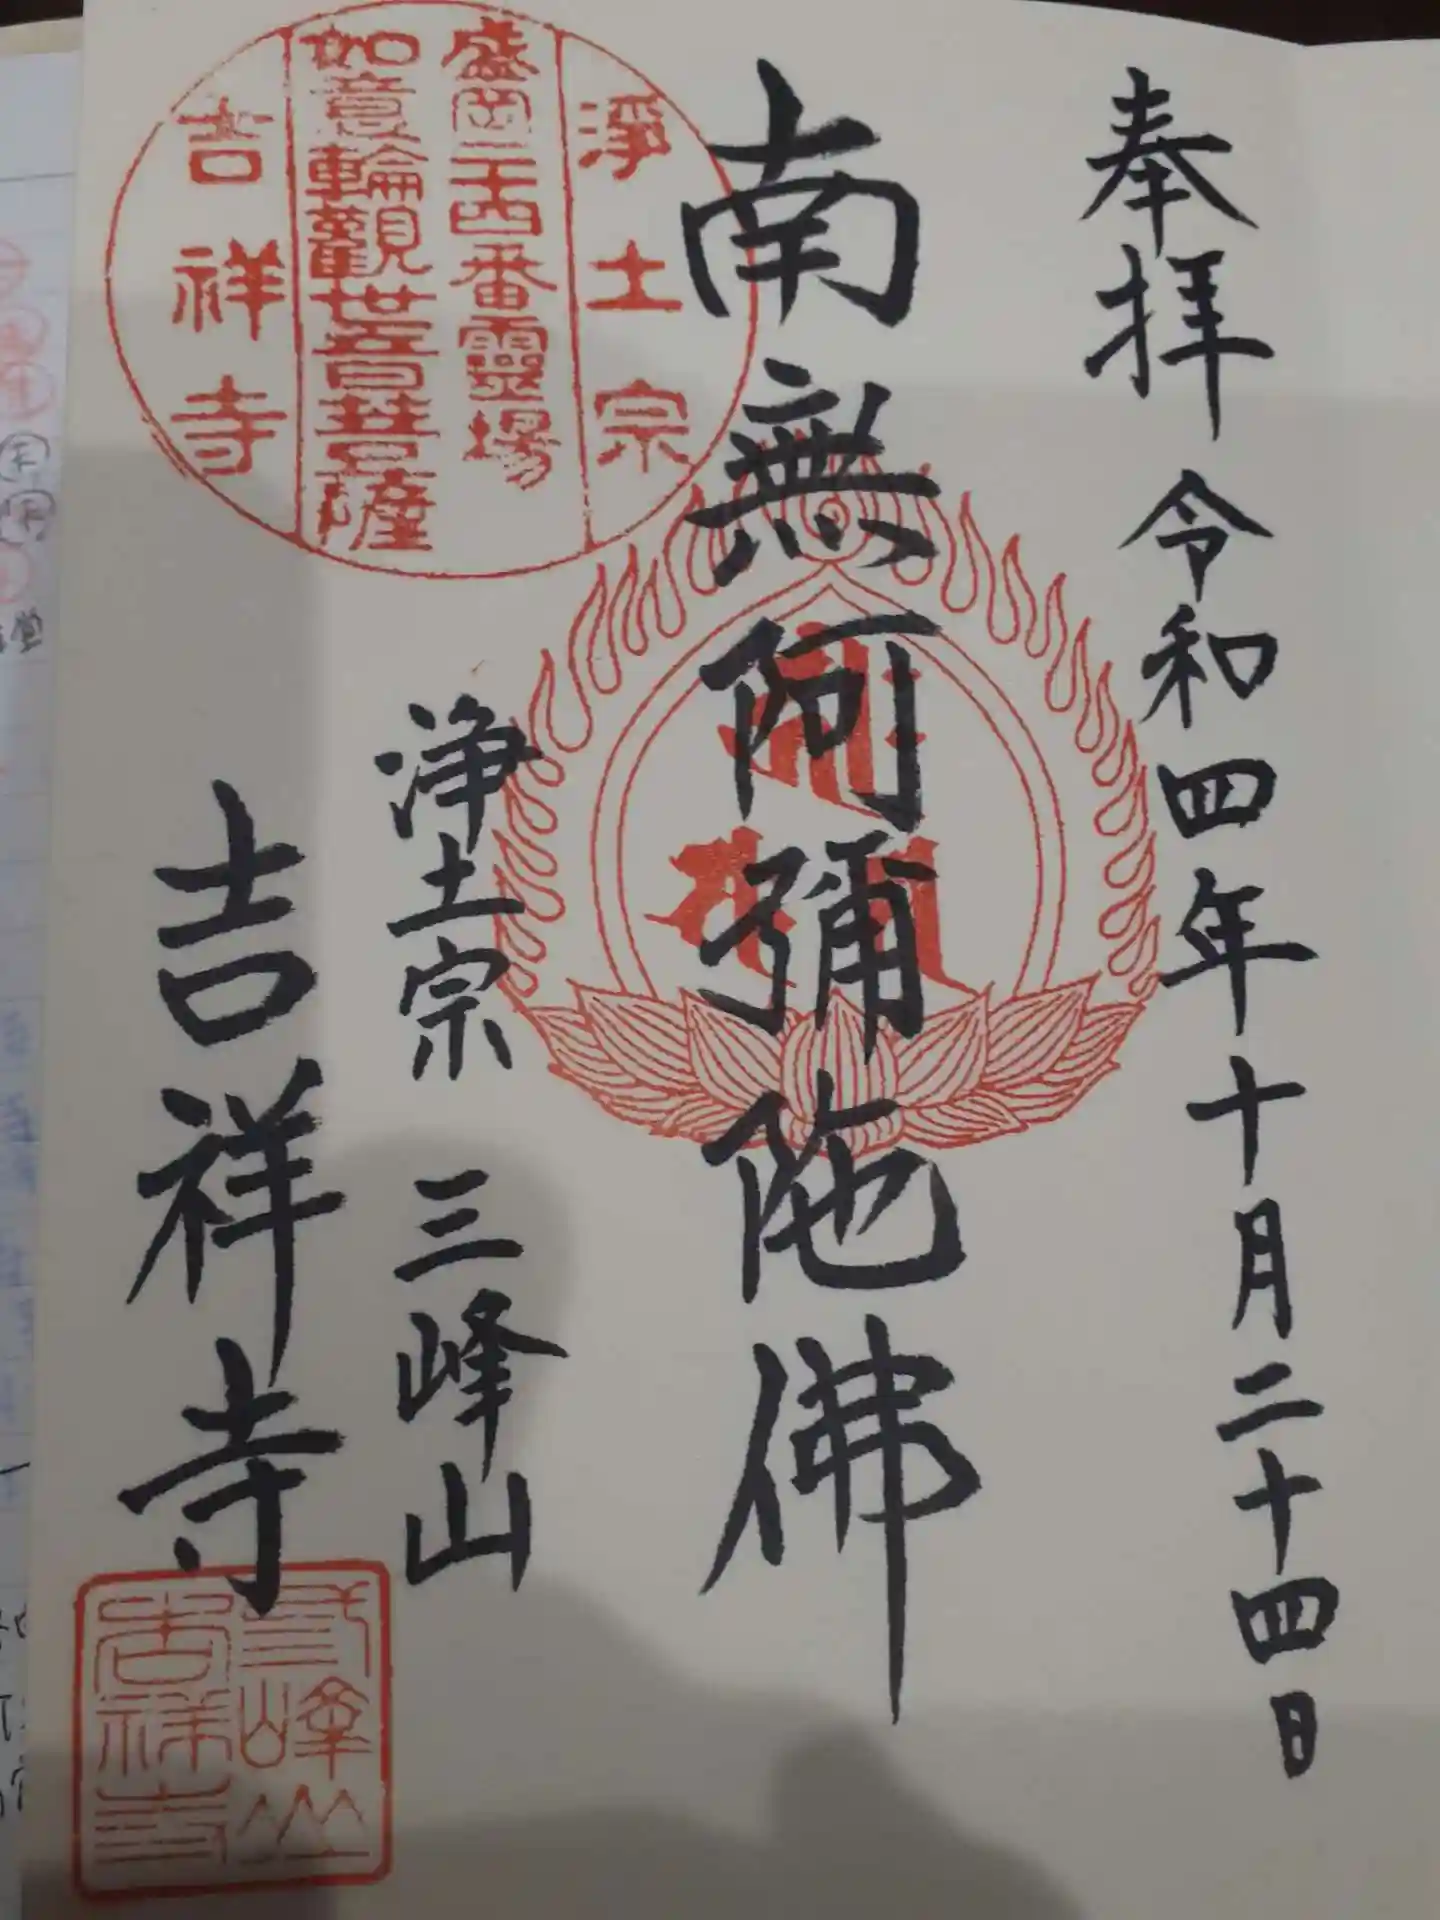 奉拝 令和四年十月二十四日
南無阿彌陀佛
浄土宗 三峰山
吉祥寺
淨土宗
盛岡三十四番靈場
如意輪觀世音菩薩
吉祥寺
三峰山
吉祥寺